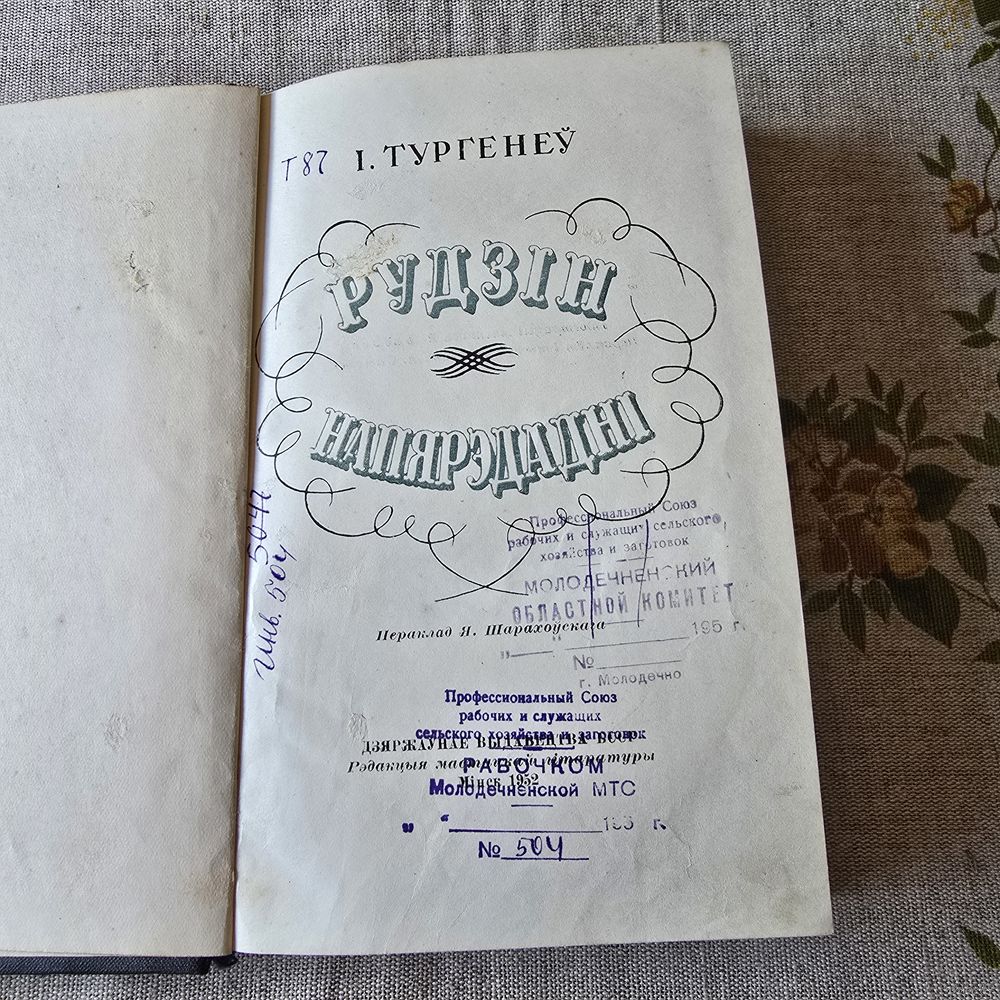 Т87 І. ТУРГЕНЕЎ
РУДЗІН
НАПЯРЭДАДНІ
5047
Инв. 504
Профессиональный Союз
рабочих и служащих сельского
хозяйства и заготовок
МОЛОДЕЧНЕНСКИЙ
ОБЛАСТНОЙ КОМИТЕТ
Пераклад Я. Шарахоўскага
„ “ 195 г.
№
г. Молодечно
Профессиональный Союз
рабочих и служащих
сельского хозяйства и заготовок
ДЗЯРЖАЎНАЕ ВЫДАВЕЦТВА БССР
Рэдакцыя мастацкай літаратуры
РАБОЧКОМ
Мінск 1952
Молодечненской МТС
„ “ 195 г.
№ 504